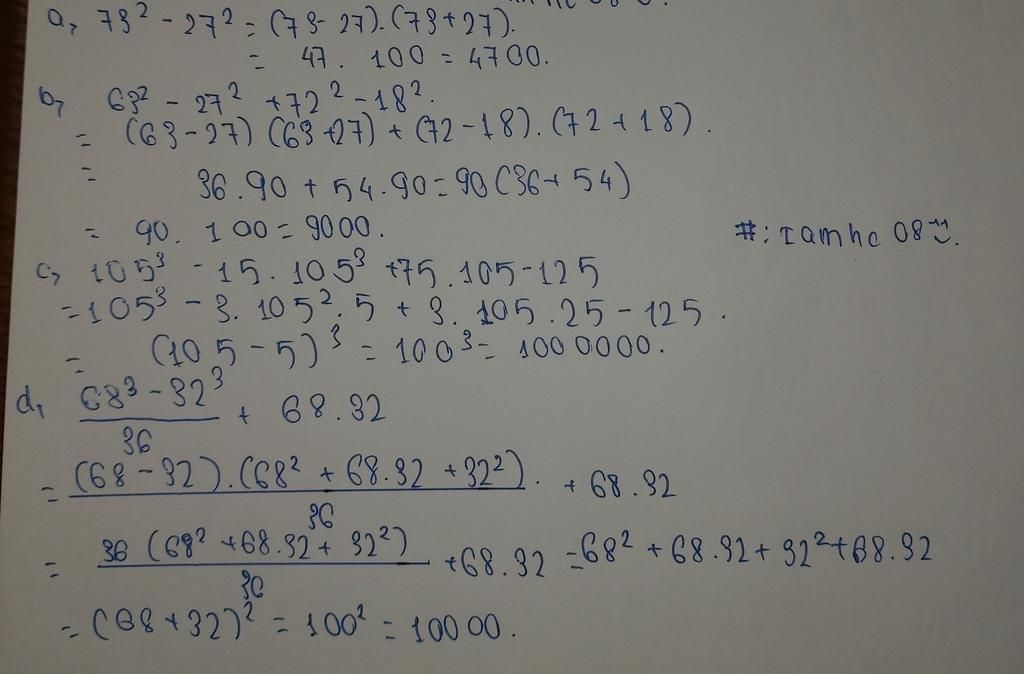 a, 73² - 27² = (73-27).(73+27).
= 47. 100 = 4700.
b, 63² - 27² +72² - 18².
= (63-27) (63+27) + (72-18). (72+18).
= 36.90 + 54.90=90(36+54)
= 90. 100= 9000.
#: Iamhc 08
c, 105³ - 15. 105³ +75.105-125
=105³ - 3. 105².5 + 3. 105.25 - 125.
= (105-5)³ = 100³= 1000000.
d, (68³ - 32³)/36 + 68.32
= ((68-32).(68² + 68.32 +32²).)/36 + 68.32
= (36 (68² +68.32+ 32²))/36 +68.32 =68² +68.32+ 32²+68.32
= (68+32)² = 100² = 10000.